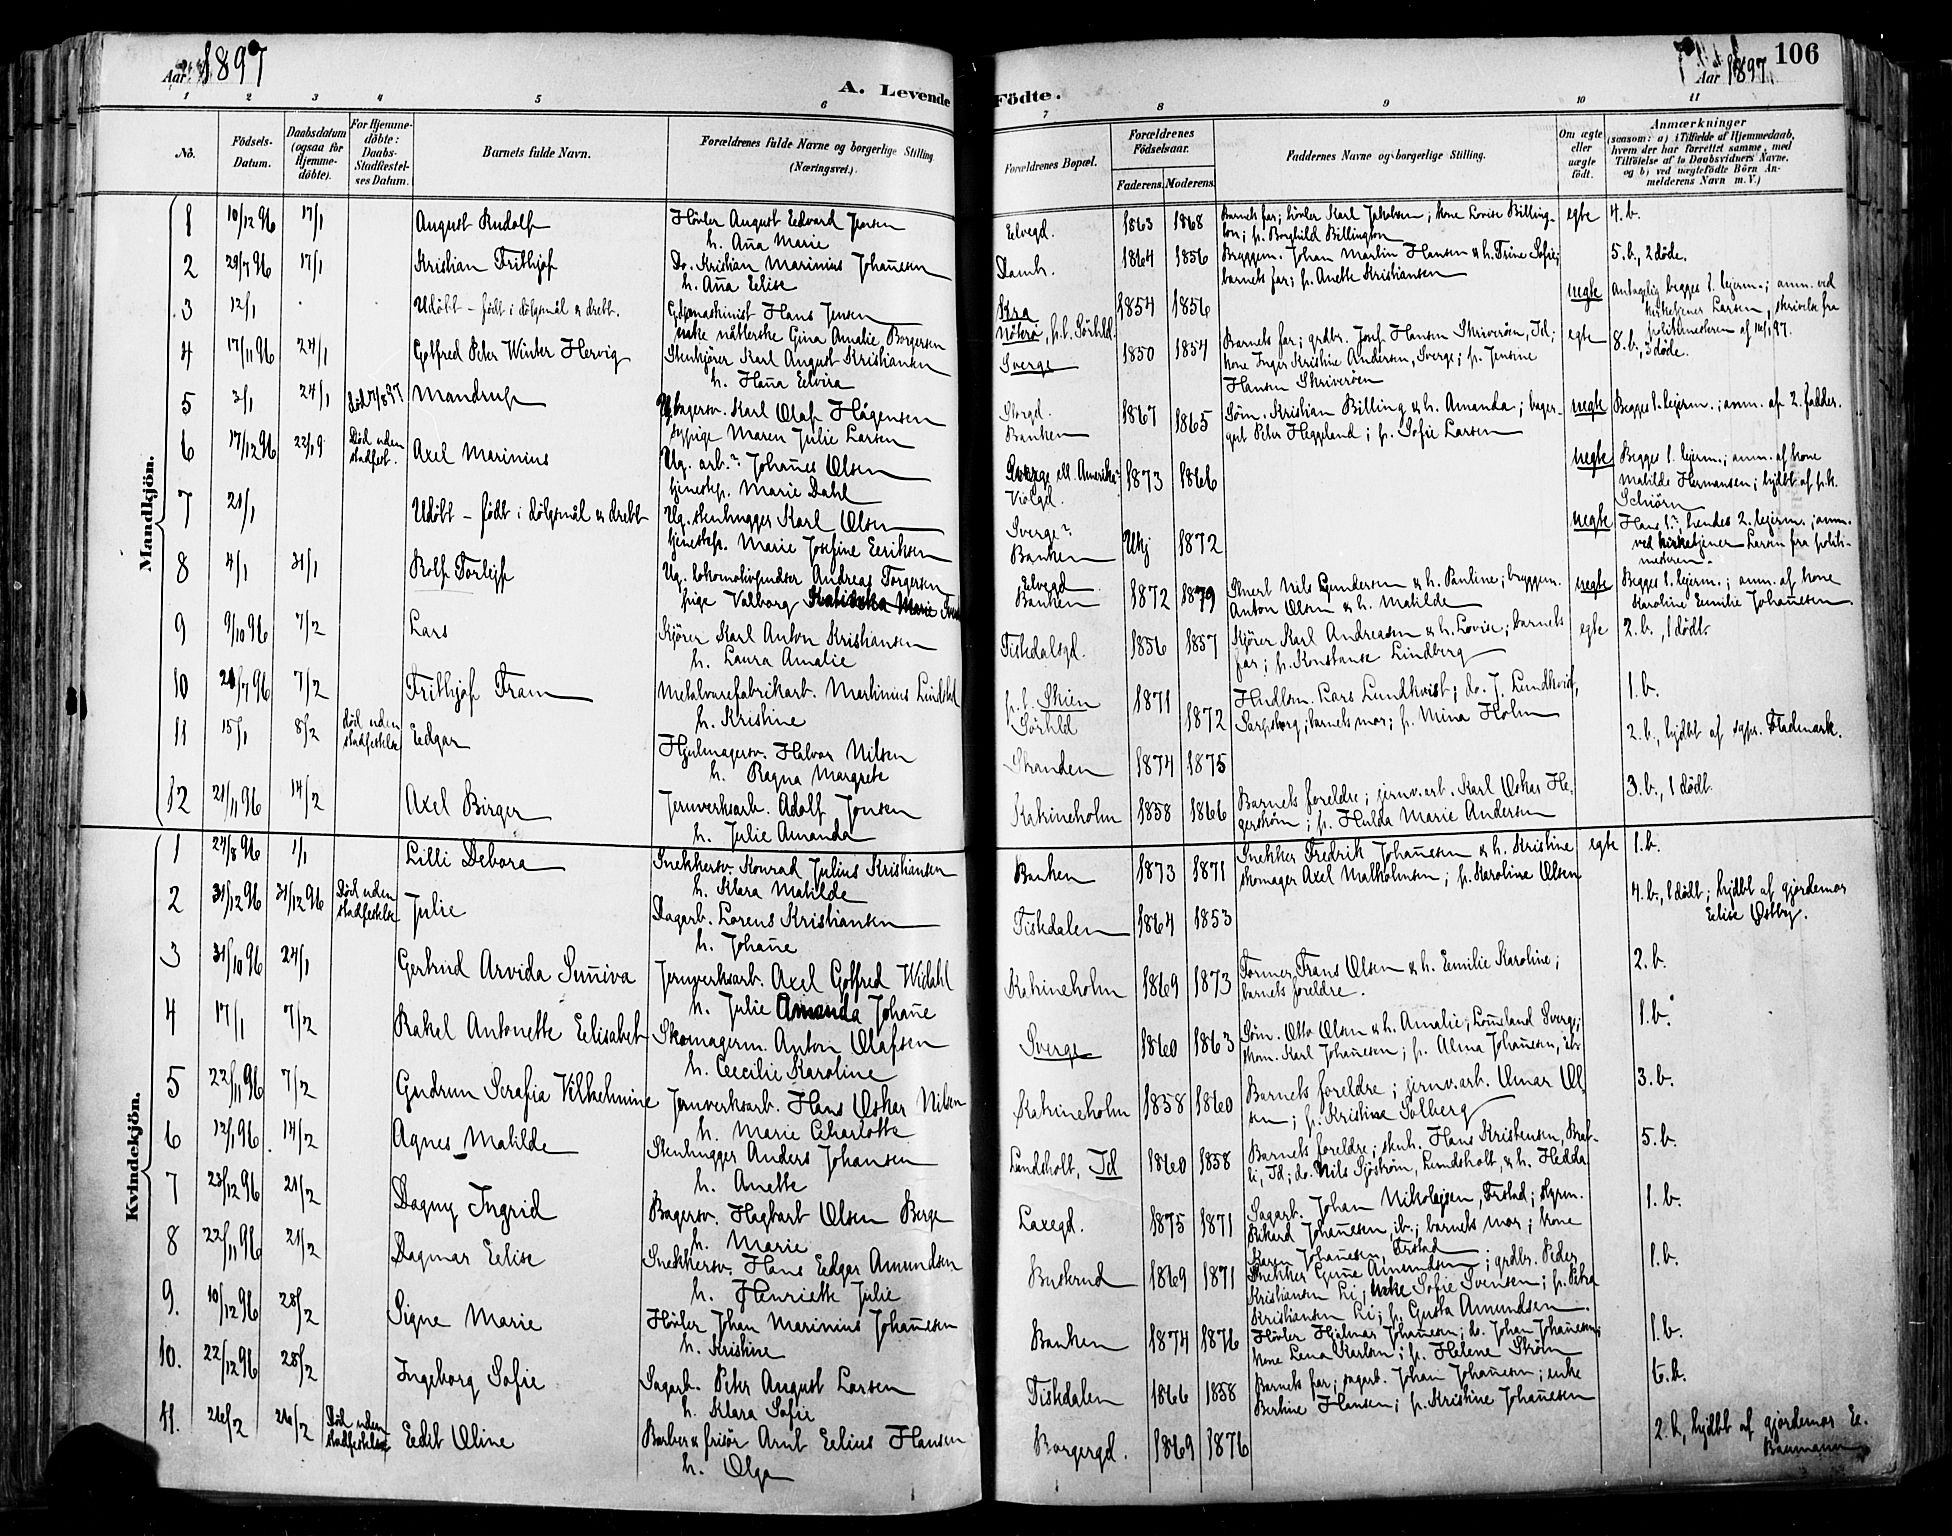 Aar 1897
A. Levende Födte.
Aar 1897 106
1 2 3 4 5 6 7 8 9 10 11
No.
Födsels-Datum.
Daabsdatum (ogsaa for Hjemme-döbte).
For Hjemme-döbte: Daabs-Stadfæstel-ses Datum.
Barnets fulde Navn.
Forældrenes fulde Navne og borgerlige Stilling (Næringsvei.)
Forældrenes Bopæl.
Forældrenes Födselsaar.
Faderens. Moderens.
Faddernes Navne og borgerlige Stilling.
Om ægte eller uægte födt.
Anmærkninger
(saasom: a) i Tilfælde af Hjemmedaab, hvem der har forrettet samme, med Tilföielse af to Daabsvidners Navne. og b) ved uægtefödte Börn An-melderens Navn m. V.)
Mandkjön.
1 10/12 96 17/1 August Rudolf Hövler August Edvard Jensen
h. Aña Marie
Elvegd. 1863 1868 Barnets far; hövler Karl Jakobsen; kone Lovise Billing-
ton; p. Borghild Billington
egte 4. b.
2 29/7 96 17/1 Kristian Frithjof Do. Kristian Marinius Johañesen
h. Aña Elise
Damh. 1864 1856 Bryggem. Johan Martin Hansen & h. Trine Sofie;
barnets far; p. Anette Kristiansen
5. b., 2 döde.
3 12/1 Udöbt – födt i dölgsmål & drebt. Hans Jensen
enke Gina Amalie Borgersen
Kra 1854 1856
uegte antagelig begges 1. lejerm.; anm. ved
kirketjener Larsen, skrivelse fra
politimesteren af 14/1 97.
4 17/11 96 24/1 Gotfred Peter Winter Hervig Stenhjörer Karl August Kristiansen
h. Haña Elvira
Sverge 1850 1854 Barnets far; grdbr. Josef Hansen Skriverøen, Id;
kone Inger Kristine Andersen, Sverge; p. Jensine
Hansen Skriverøen
egte 8. b., 3 döde.
5 3/1 24/1 Mandrup Ug. bagersv. Karl Olaf Hågensen
sypige Maren Julie Larsen
Storgd.
Banken 1867 1865 Söm. Kristian Billing & h. Amanda; bager-
gut Peter Heggeland; p. Sofie Larsen
uegte Begges 1. lejerm.; anm. af 2. fadder.
6 17/12 96 Död uden
stadfest. Axel Marinius Ug. arb.? Johañes Olsen
tjenestep. Marie Dahl
Sverge ell. Amerika?
Violgd. 1873 1866
uegte Begges 1. lejerm.; anm. af kone
Matilde Hermansen; hjdbt af p.k.
Schiörn
7 21/1 Udöbt – födt i dölgsmål & drebt Ug. stenhugger Karl Olsen
tjenestep. Marie Josefine Eriksen
Sverge?
Banken Ukj 1872
uegte Hans 1.?, hendes 2. lejerm.; anm.
ved kirketjener Larsen fra politi-
mesteren.
8 4/1 31/1 Rolf Torleif Ug. lokomotivpudser Andreas Torgersen
pige Valborg
Elvegd
Banken 1872 1879 Snerk Nils Gundersen & h. Pauline; bryggem.
Anton Olsen & h. Matilde
uegte Begges 1. lejerm.; anm. af kone
Karoline Emilie Johañesen
9 9/10 96 7/2 Lars Kjörer Karl Anton Kristiansen
h. Laura Amalie
Tistedalsgd. 1856 1857 Kjörer Karl Andreasen & h. Lovise; barnets
far; p. Konstanse Lindberg
egte 2. b., 1 dödt.
10 7/2 Frithjof Fram Metalvarefabrikarb. Martinius
h. Kristine
p. t. Skien
Sörhld 1871 1872 Lars Lundkvist; do. J. Lundkvist,
Sarpsborg; barnets mor; p. Mina Holm
1. b.
11 15/1 8/2 död uden
stadfestelse Edgar Hjulmagersv. Halvor Nilsen
h. Ragna Margrete
Stranden 1874 1875
2. b., hjdbt af sypr. Flademark.
12 21/11 96 14/2 Axel Birger Jernverksarb. Adolf Jonsen
h. Julie Amanda
Katrineholm 1858 1866 Barnets foreldre; jernv.arb. Karl Oskar He-
gerström; p. Hulda Marie Andersen
3. b., 1 dödt
Kvindekjön.
1 27/8 96 1/1 Lilli Debora Snekkersv. Konrad Julius Kristiansen
h. Klara Matilde
Banken 1873 1871 Snekker Fredrik Johañesen & h. Kristine
skomager Axel Malkolmsen; p. Karoline Olsen
egte 1. b.
2 31/12 96 31/12 96 Död uden
stadfestelse Julie Dagarb. Lorens Kristiansen
h. Johañe
Tistedalen 1864 1853
4. b., 1 dödt; hjdbt af gjordemor
Elise Østby.
3 31/10 96 24/1 Gertrud Arvida Suñiva Jernverksarb. Axel Gotfred Widahl
h. Julie Amanda Johañe
Katrineholm 1869 1873 Former Frans Olsen & h. Emilie Karoline;
barnets foreldre.
2. b.
4 17/1 7/2 Rakel Antonette Elisabet Skomagerm. Anton Olafsen
h. Cecilie Karoline
Sverge 1860 1863 Söm. Otto Olsen & h. Amalie, Sverge;
skom. Karl Johañesen; p. Alma Johañesen,
1. b.
5 22/11 96 7/2 Gudrun Serafia Vilhelmine Jernverksarb. Hans Oskar Nilsen
h. Marie Charlotte
Katrineholm 1858 1860 Barnets foreldre; jernv.arb. Omar Ol-
sen; p. Kristine Solberg
3. b.
6 12/1 96 14/2 Agnes Matilde Stenhugger Anders Johansen
h. Anette
Lundsholt, Id 1860 1858 Barnets foreldre; stenh. Hans Kristensen, Brat-
li, Id; do. Nils Sjöström, Lundsholt, & h. Hedda
5. b.
7 23/12 96 21/2 Dagny Ingrid Bagersv. Hagbart Olsen Berge
h. Marie
Laxegd. 1875 1871 Sagarb. Johan Nikolajsen, Frstad; styrm.
Rikard Johañesen, ib.; barnets mor; kone
Karen Johañesen, Frstad
1. b.
8 22/11 96 21/2 Dagmar Elise Snekkersv. Hans Edgar Amundsen
h. Henriette Julie
Buskerud 1869 1871 Snekker Amundsen; grdbr. Peder
Kristiansen Li; enke Sofie Svensen; p. Petra
Kristiansen Li; p. Gusta Amundsen.
1. b.
9. 10/12 96 28/2 Signe Marie Hövler Johan Marinius Johañesen
h. Kristine
Banken 1874 1876 Hövler Hjalmar Johañesen; do. Johan Johañesen;
kone Lena Karlsen; p. Helene Ström
1. b.
10. 22/12 96 28/2 Ingeborg Sofie Sagarb. Peter August Larsen
h. Klara Sofie
Tistedalen 1866 1858 Barnets far; sagarb. Johan Johañesen; enke
Bertine Hansen; p. Kristine Johañesen
6. b.
11. 26/2 26/2 Död uden
stadfestelse Edit Oline Barber & frisör Arnt Elius Hansen
h. Olga
Borgergd. 1869 1876
2. b., hjdbt af gjordemor E.
Baumann